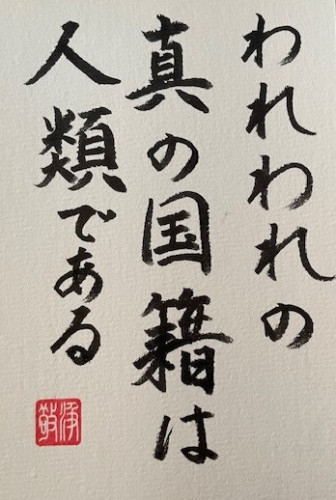 われわれの
真の国籍は
人類である